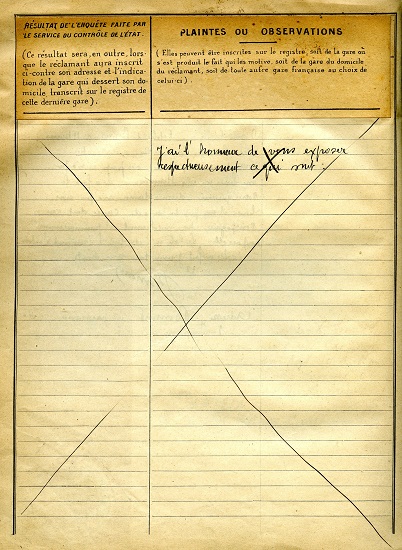 RÉSULTAT DE L'ENQUÊTE FAITE PAR
LE SERVICE DU CONTRÔLE DE L'ÉTAT.
(Ce résultat sera, en outre, lors-
que le réclamant aura inscrit
ci-contre son adresse et l'indica-
tion de la gare qui dessert son do-
micile, transcrit sur le registre de
cette dernière gare).
PLAINTES OU OBSERVATIONS
(Elles peuvent être inscrites sur le registre, soit de la gare où
s'est produit le fait qui les motive, soit de la gare du domicile
du réclamant, soit de toute autre gare française au choix de
celui-ci).
J'ai l'honneur de vous exposer
respectueusement ce qui suit :